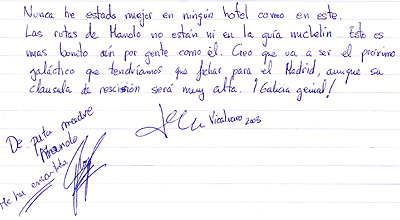 Nunca he estado mejor en ningún hotel como en este.
Las rutas de Manolo no están ni en la guía michelín. Esto es
mas bonito aún por gente como él. Creo que va a ser el próximo
galáctico que tendríamos que fichar para el Madrid, aunque su
clausula de rescisión será muy alta. ¡Galicia genial!
Vicalvaro 2003
De puta madre
Manolo
Me ha encantado